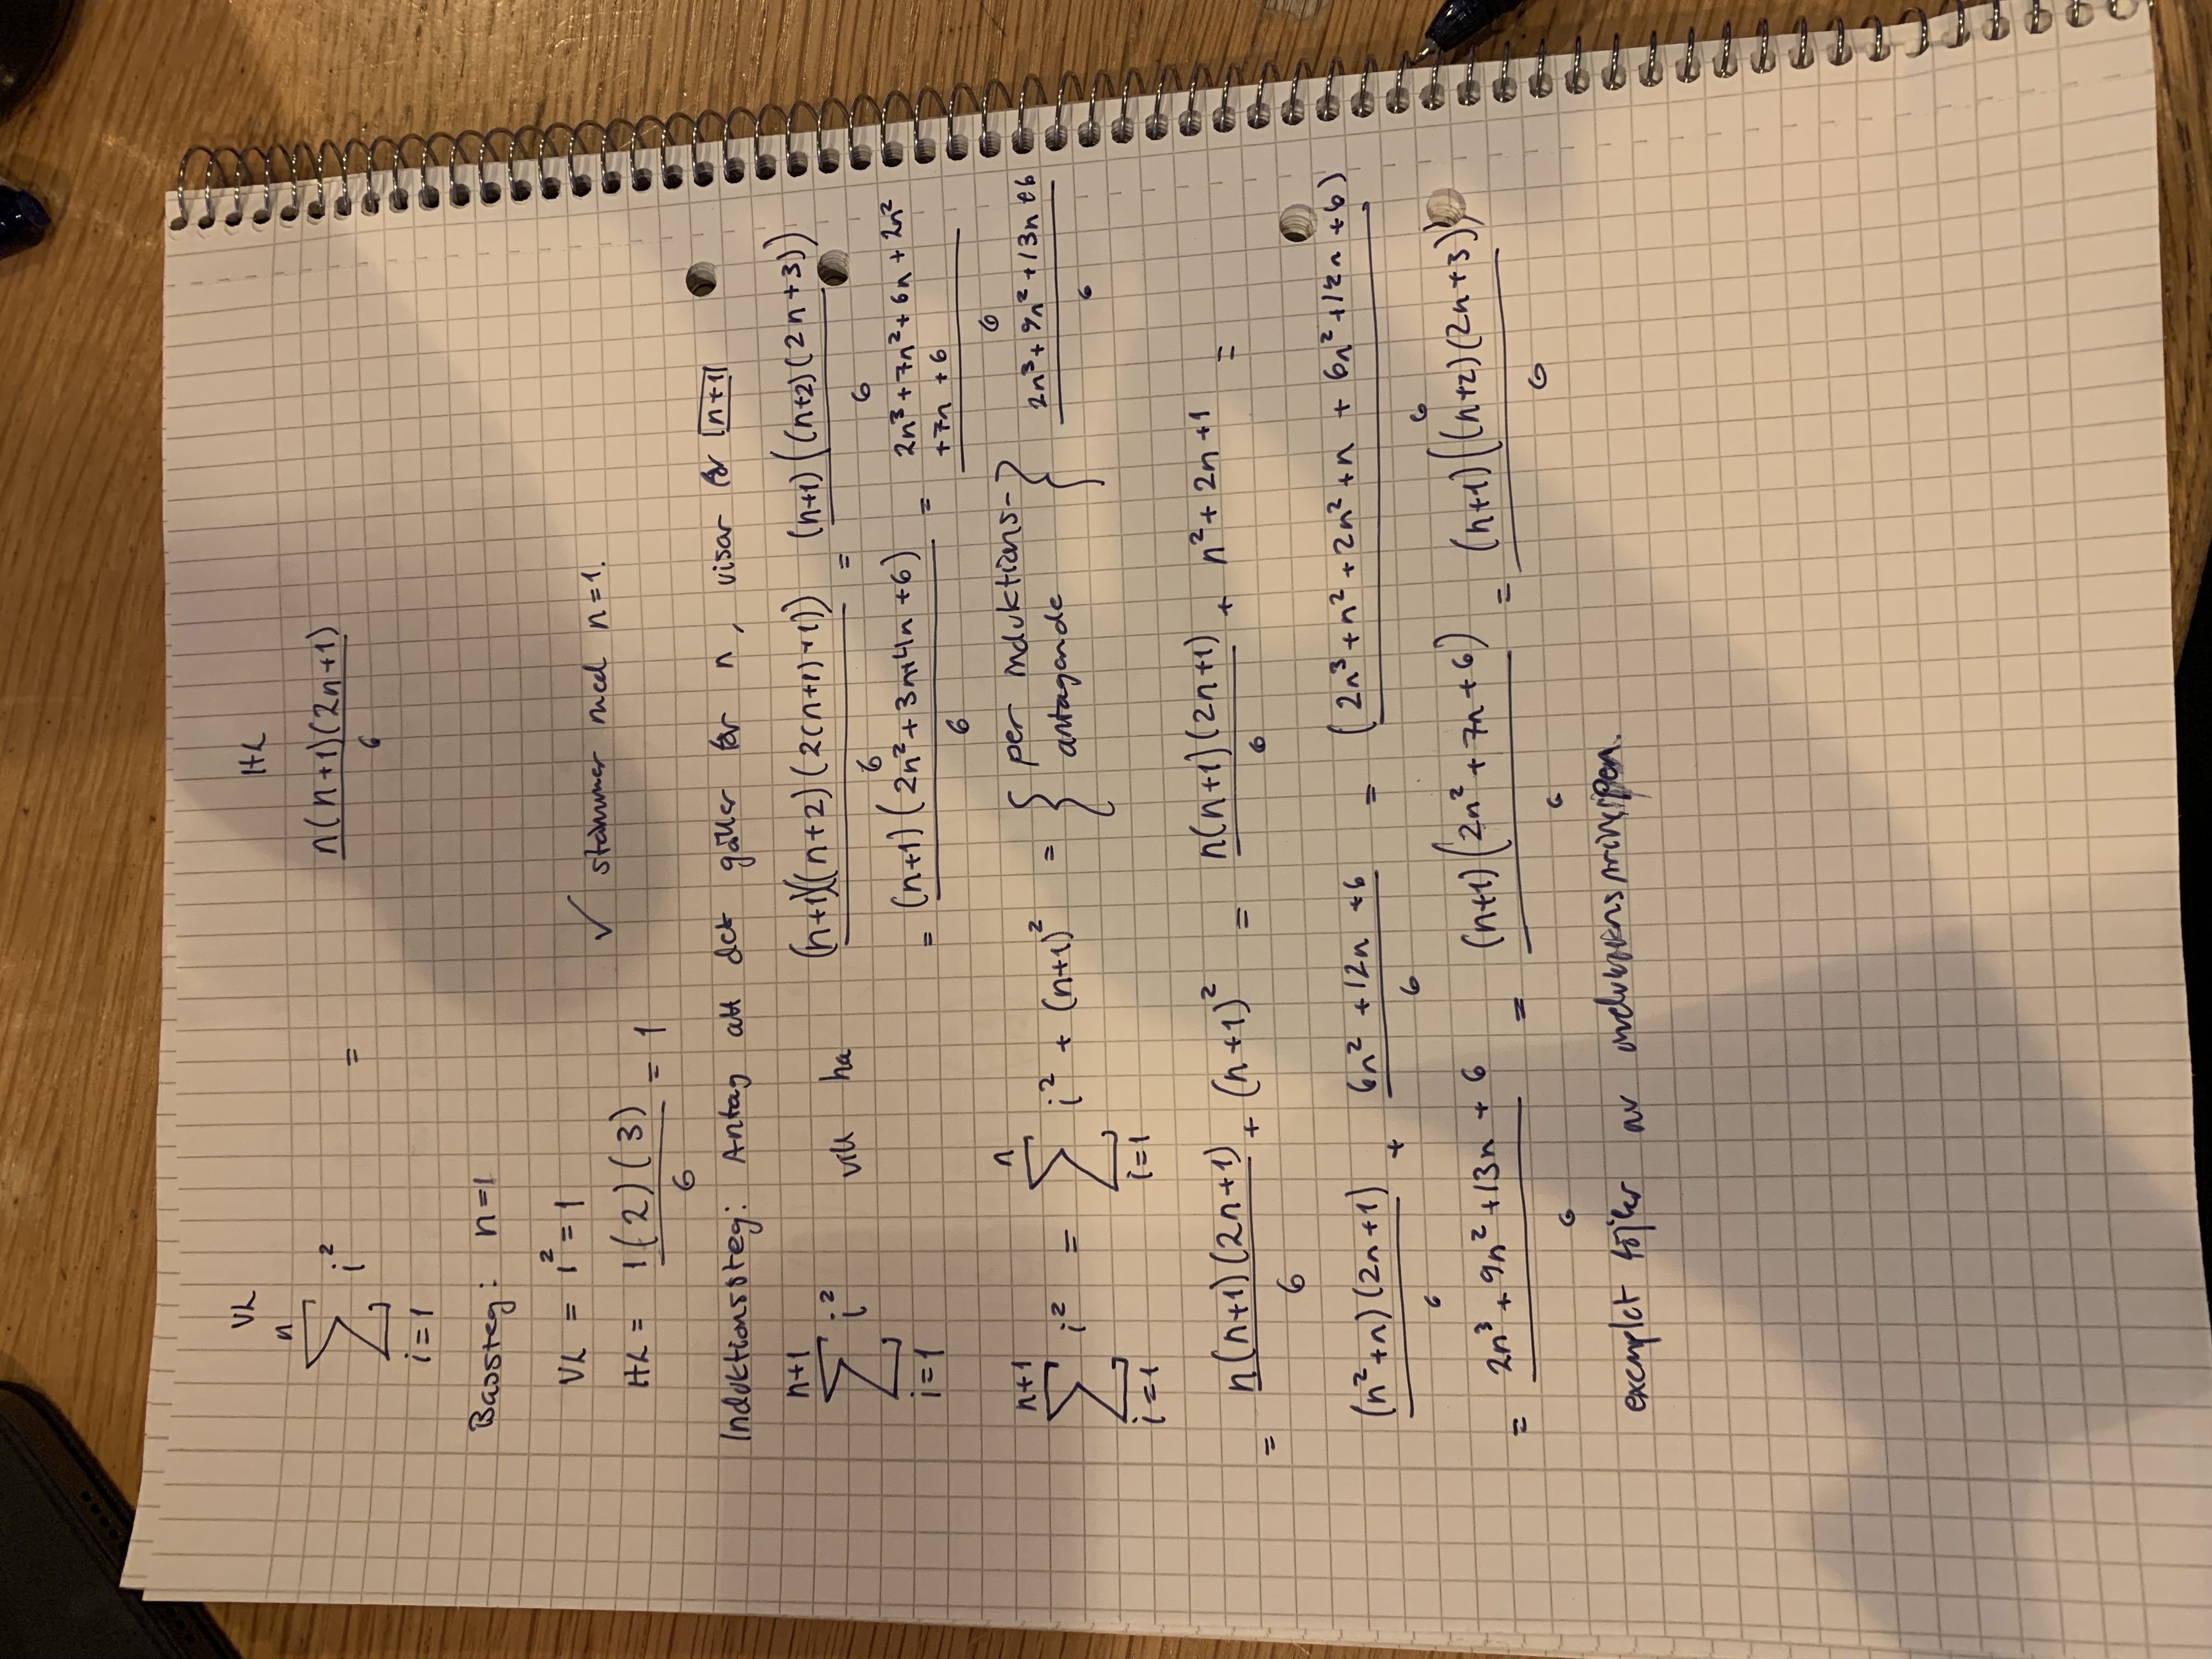 VL HL
n
∑ i² = n(n+1)(2n+1)/6
i=1
Bassteg: n=1
VL = 1² = 1
✓ stämmer med n=1.
HL = 1(2)(3)/6 = 1
Induktionssteg: Antag att det gäller för n, visar för n+1
n+1
∑ i² vill ha (n+1)((n+2)(2(n+1)+1))/6 = (n+1)((n+2)(2n+3))/6
i=1
= (n+1)(2n²+3n+4n+6)/6 = 2n³+7n²+6n+2n²+7n+6/6
n+1 n
∑ i² = ∑ i² + (n+1)² = { per induktions-antagande } 2n³+9n²+13n+6/6
i=1 i=1
= n(n+1)(2n+1)/6 + (n+1)² = n(n+1)(2n+1)/6 + n²+2n+1 =
(n²+n)(2n+1)/6 + 6n²+12n+6/6 = (2n³+n²+2n²+n + 6n²+12n+6)/6
= 2n³+9n²+13n+6/6 = (n+1)(2n²+7n+6)/6 = (n+1)((n+2)(2n+3))/6
exemplet följer av induktionsprincipen.